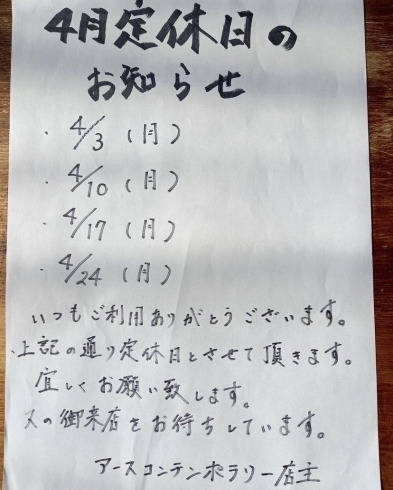 4月定休日の
お知らせ
・4/3(月)
・4/10(月)
・4/17(月)
・4/24(月)
いつもご利用ありがとうございます。
上記の通り定休日とさせて頂きます。
宜しくお願い致します。
又の御来店をお待ちしています。
アースコンテンポラリー店主